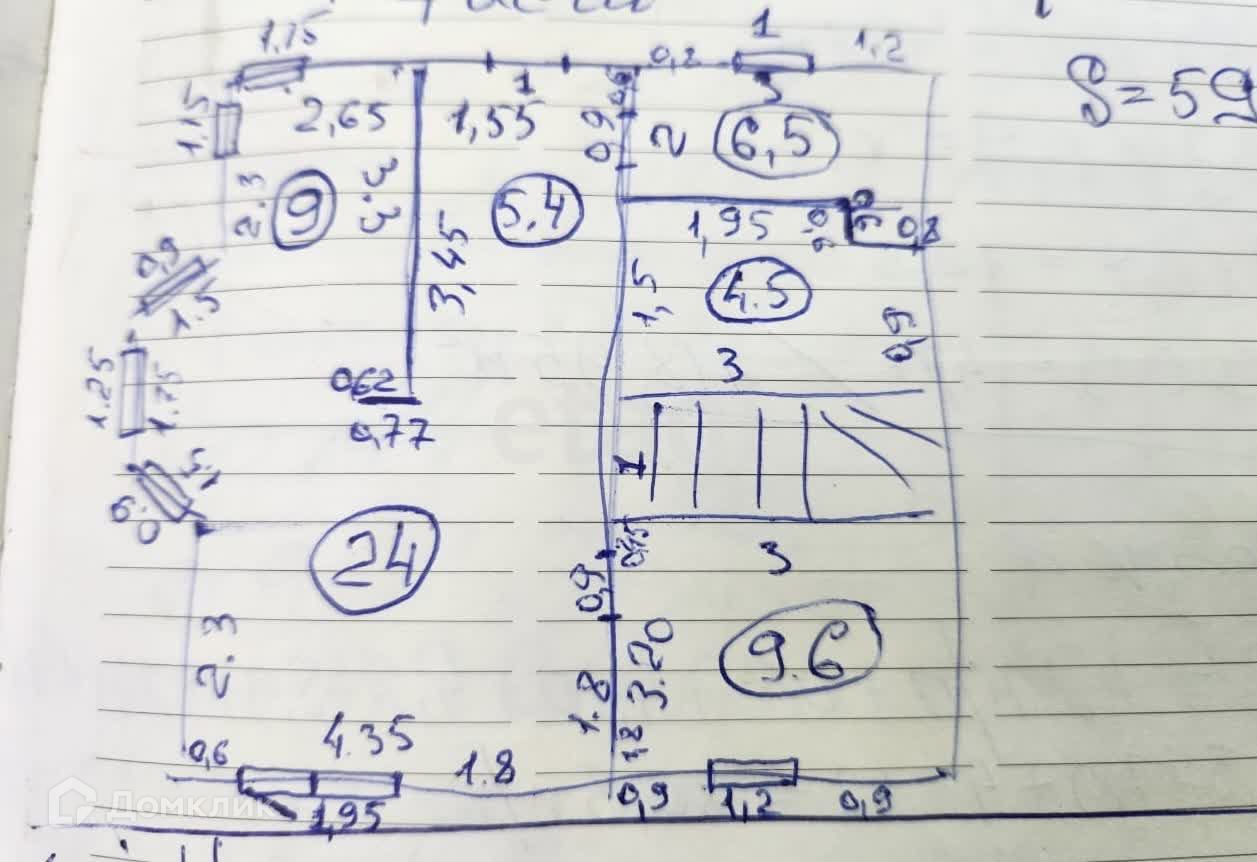 1.15
1
0,2
1
1,2
S=59
1.15
2,65
1,55
0,9
2
3
6,5
2.3
9
3.3
3,45
5.4
1,95
0,8
0,9
1.5
1,5
4.5
0,9
1.25
1.75
0,62
0,77
3
1
0,9
24
0,15
3
0,9
2.3
3.20
9.6
1.8
1,8
0,6
4.35
1.8
0,9
1,2
0,9
1,95
Домклик